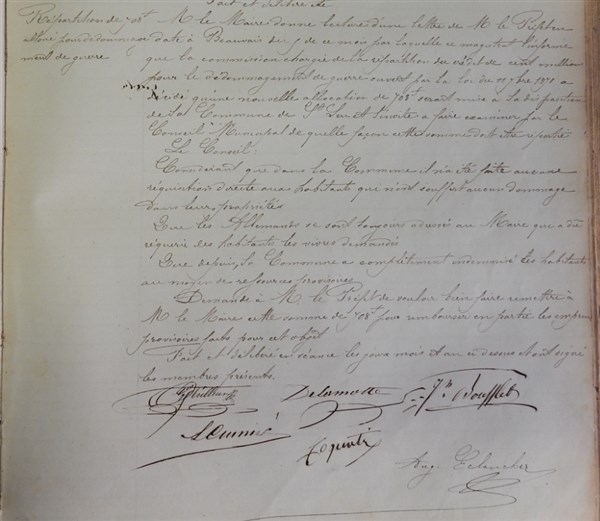 Fait et délibéré
Répartition de 708f
alloué pour dédommage
ment de guerre
M le Maire donne lecture d'une lettre de M le Préfet en
date à Beauvais du 5 de ce mois par laquelle ce magistrat l'informe
que la commission chargée de la répartition du crédit de cent millions
pour le dédommagement de guerre ouvert par la loi du 7bre 1871 a
décidé qu'une nouvelle allocation de 708f serait mise à la disposition
de la Commune de St Leu et l'invite à faire examiner par le
Conseil Municipal de quelle façon cette somme doit être répartie
Le Conseil:
Considérant que dans la Commune il n'a été faite aucune
réquisition directe aux habitants qui n'ont souffert aucun dommage
dans leurs propriétés
Que les Allemands se sont toujours adressés au Maire qui a dû
requérir des habitants les vivres demandés
Que depuis, la Commune a complètement indemnisé les habitants
au moyen de ressources provisoires
Demande à M le Préfet de vouloir bien faire remettre à
M le Maire cette somme de 708f pour rembourser en partie les emprunts
provisoires faits pour cet objet
Fait et délibéré en séance les jours mois et an ci dessus et ont signé
les membres présents.
Delamotte
Toupenté
Aug.